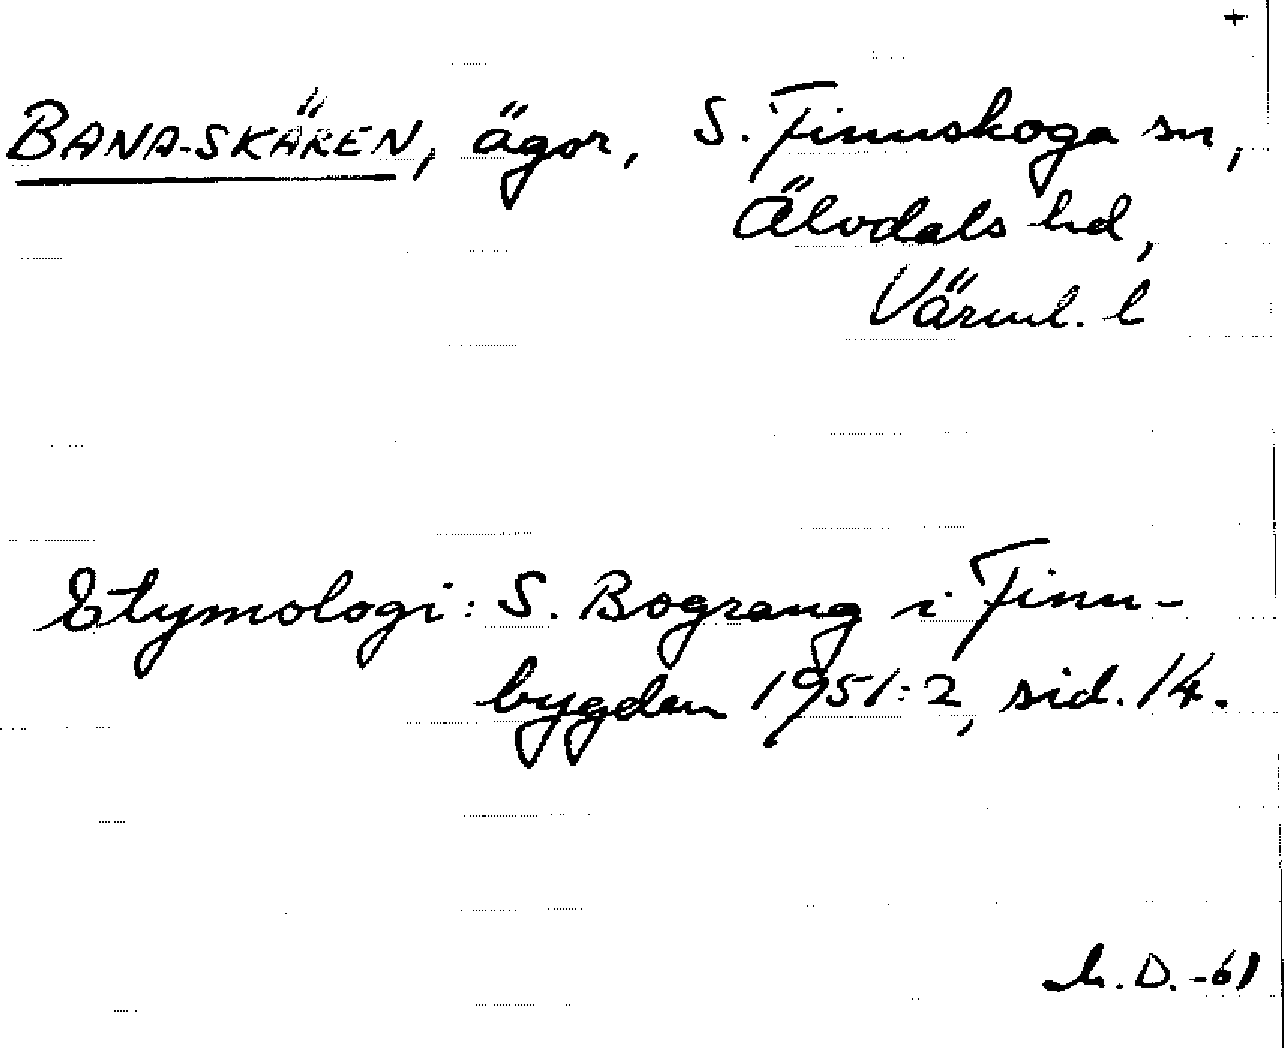 +
BANA-SKÄREN, ägor, S. Finnskoga sn,
Älvdals hd,
Värml. l
Etymologi: S. Bograng i Finn-
bygden 1951:2, sid. 14.
D. -61